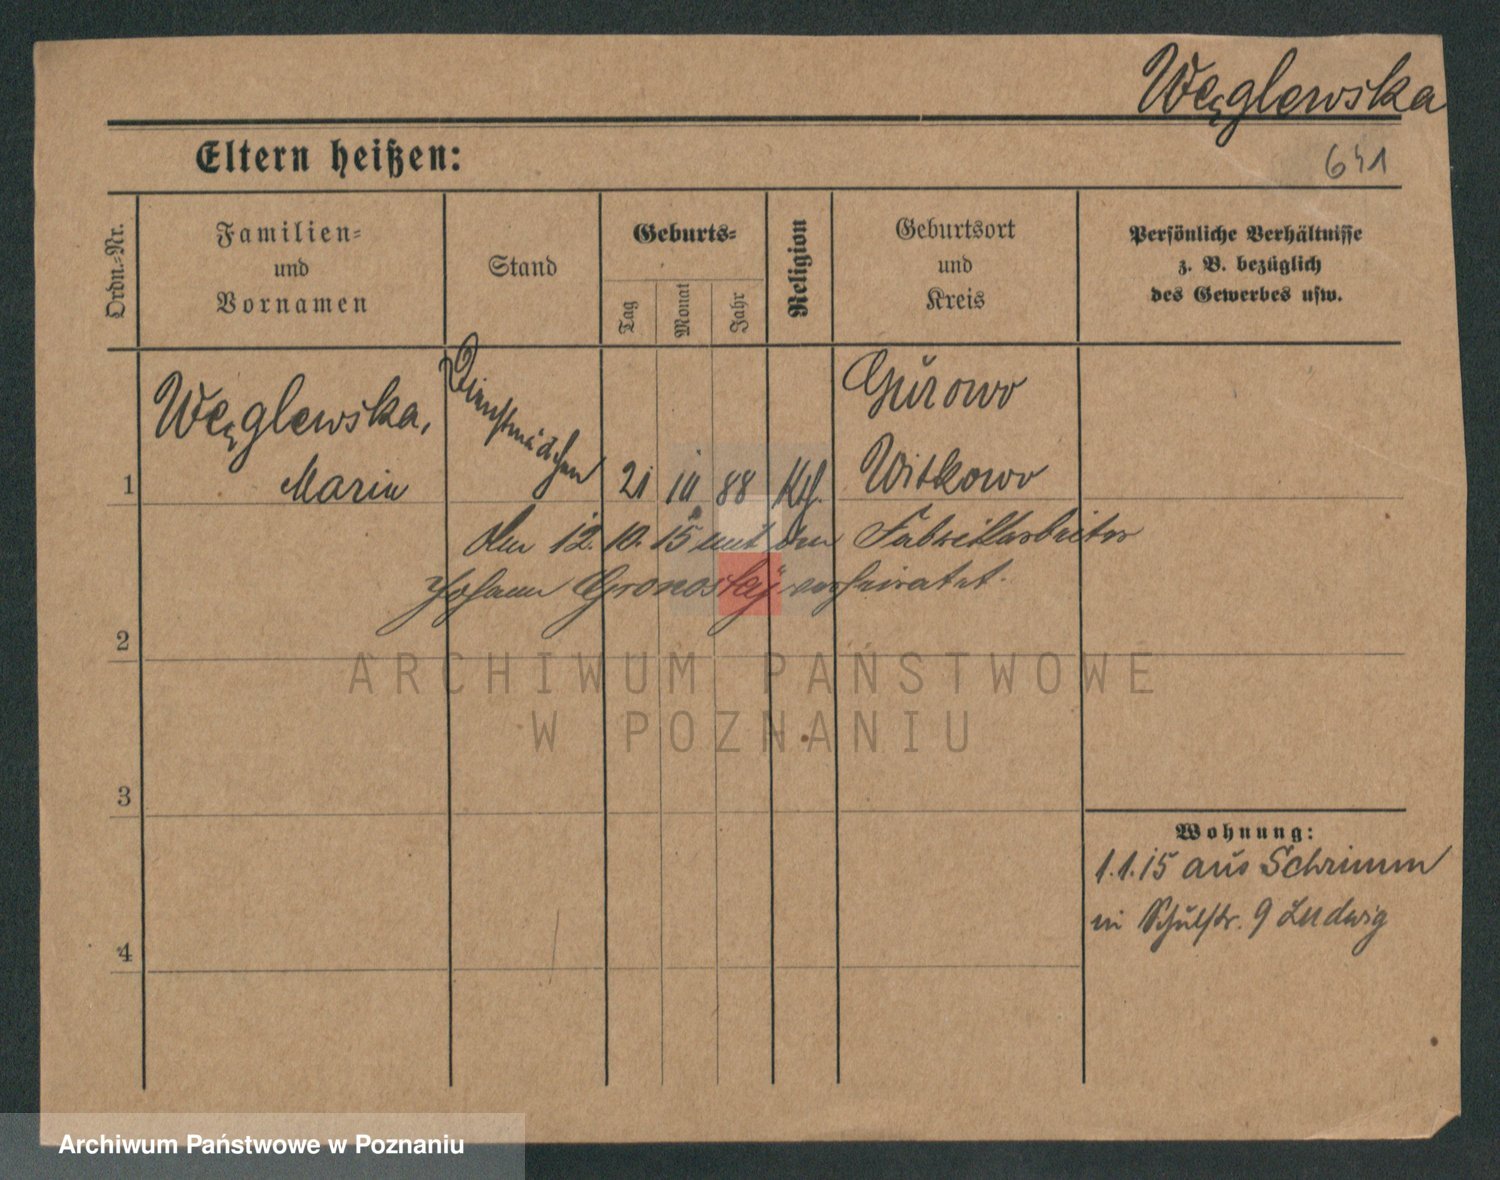 Węglewska
Eltern heißen:
641
Ordn.-Nr.
Familien-
und
Vornamen
Stand
Geburts-
Tag
Monat
Jahr
Religion
Geburtsort
und
Kreis
Persönliche Verhältnisse
z. B. bezüglich
des Gewerbes usw.
1
Węglewska,
Maria
Dienstmädchen
21
88
Kth.
Gurowo
Witkowo
den 12. 10. 15 mit dem Fabrikarbeiter
Johann Gronoski verheiratet.
2
3
4
Wohnung:
1.1.15 aus Schrimm
in Schulstr. 9 Ludwig
ARCHIWUM PAŃSTWOWE
W POZNANIU
Archiwum Państwowe w Poznaniu